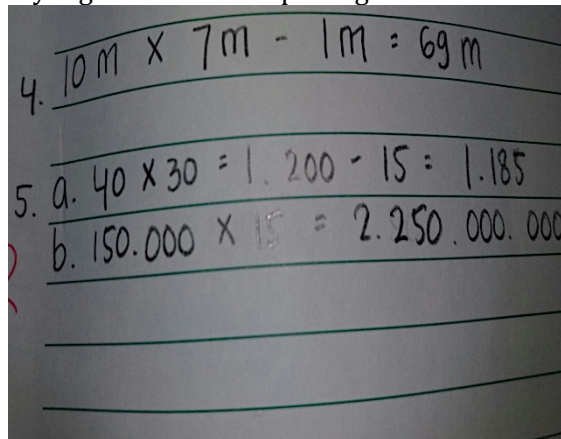 4. 10 m x 7 m - 1 m = 69 m
5. a. 40 x 30 = 1.200 - 15 = 1.185
b. 150.000 x 15 = 2.250.000.000